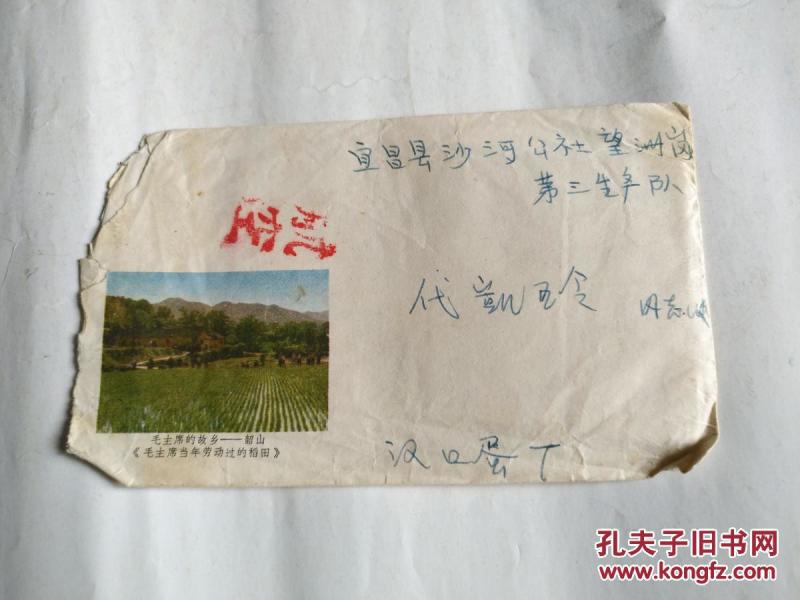 宜昌县沙河公社望洲岗
第三生产队
航空
代凯玉令 同志收
毛主席的故乡——韶山
《毛主席当年劳动过的稻田》
汉口蛋厂
孔夫子旧书网
www.kongfz.com